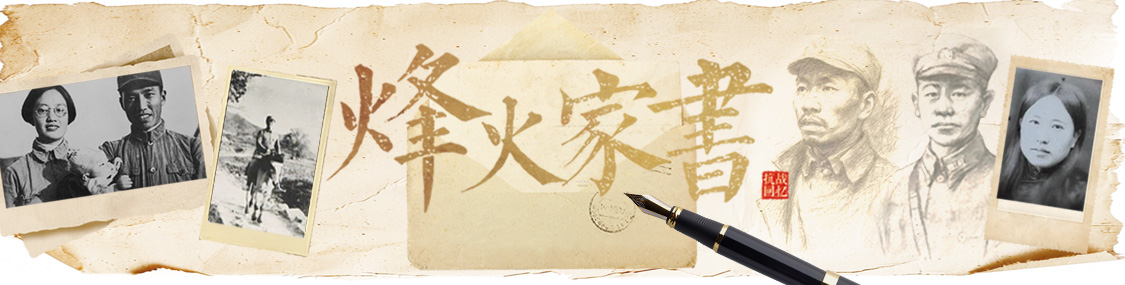 烽火家書
抗战
回忆